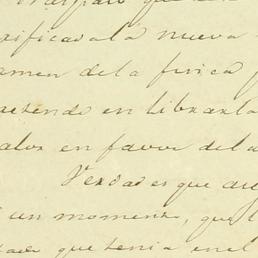 que
ificas a la nueva
amen de la fisica
retende en librarla
alor en favor del a
Verdad es que
un momento, que l
que tenia en el